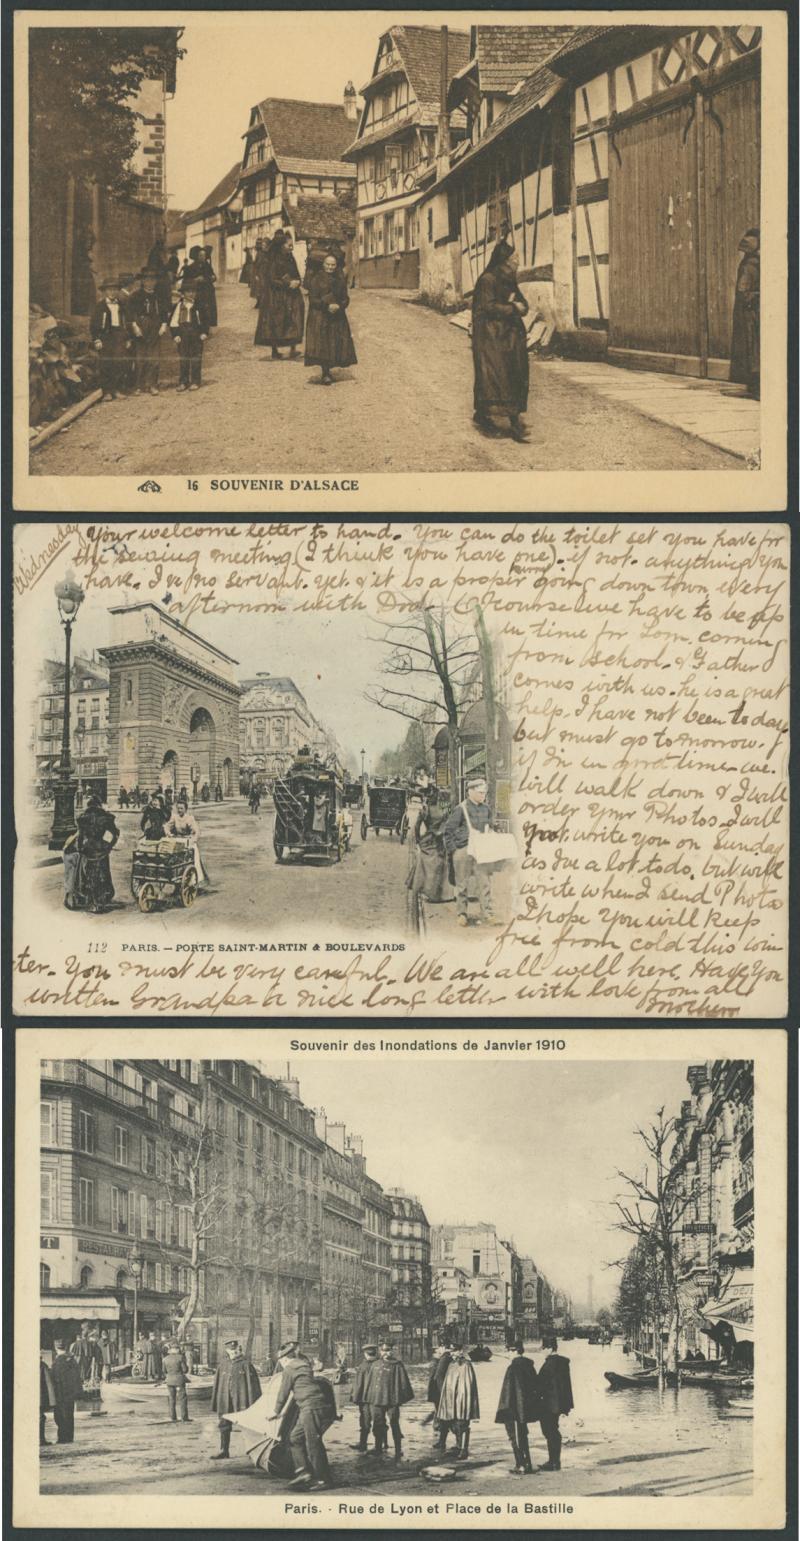 16 SOUVENIR D'ALSACE
Wednesday
Your welcome letter to hand. You can do the toilet set you have for
the sewing meeting (I think you have one). if not. anything you
have. I've no servant. yet. & it is a proper going down town every
hurry
afternoon with Dod. Of course we have to be up
in time for Tom coming
from school. & Father
comes with us. he is a great
help. I have not been to day
but must go to morrow. &
if I'm in good time we
will walk down & I will
order your Photos I will
not write you on Sunday
as I've a lot to do. but will
write when I send Photos
I hope you will keep
free from cold this win
ter. You must be very careful. We are all well here. Have you
written Grandpa a nice long letter with love from all
Mother
112 PARIS. — PORTE SAINT-MARTIN & BOULEVARDS
Souvenir des Inondations de Janvier 1910
RESTAURANT
Paris. - Rue de Lyon et Place de la Bastille